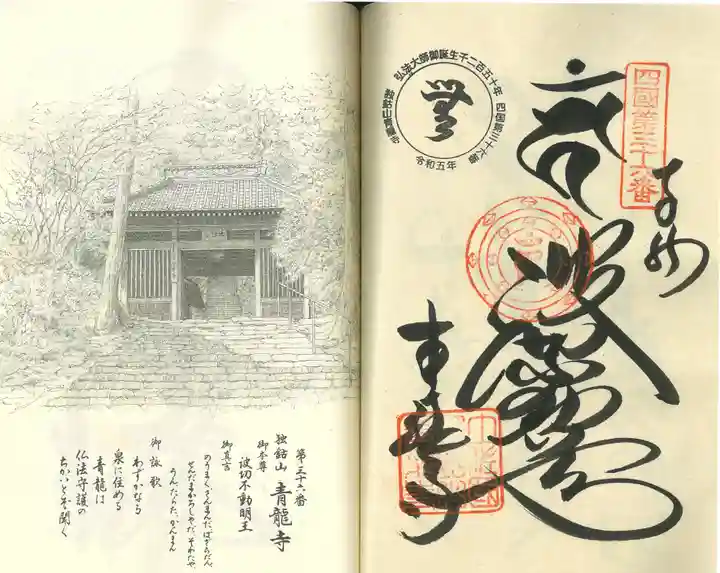 四國第三十六番
奉納
波切不動尊
青龍寺
弘法大師御誕生千二百五十年
四国第三十六番
独鈷山青龍寺
令和五年
第三十六番
独鈷山 青龍寺
御本尊
波切不動明王
御真言
のうまく、さんまんだ、ばざらだん、
せんだまかろしゃだ、そわたや、
うん、たらた、かんまん
御詠歌
わずかなる
泉に住める
青龍は
仏法守護の
ちかいとぞ聞く